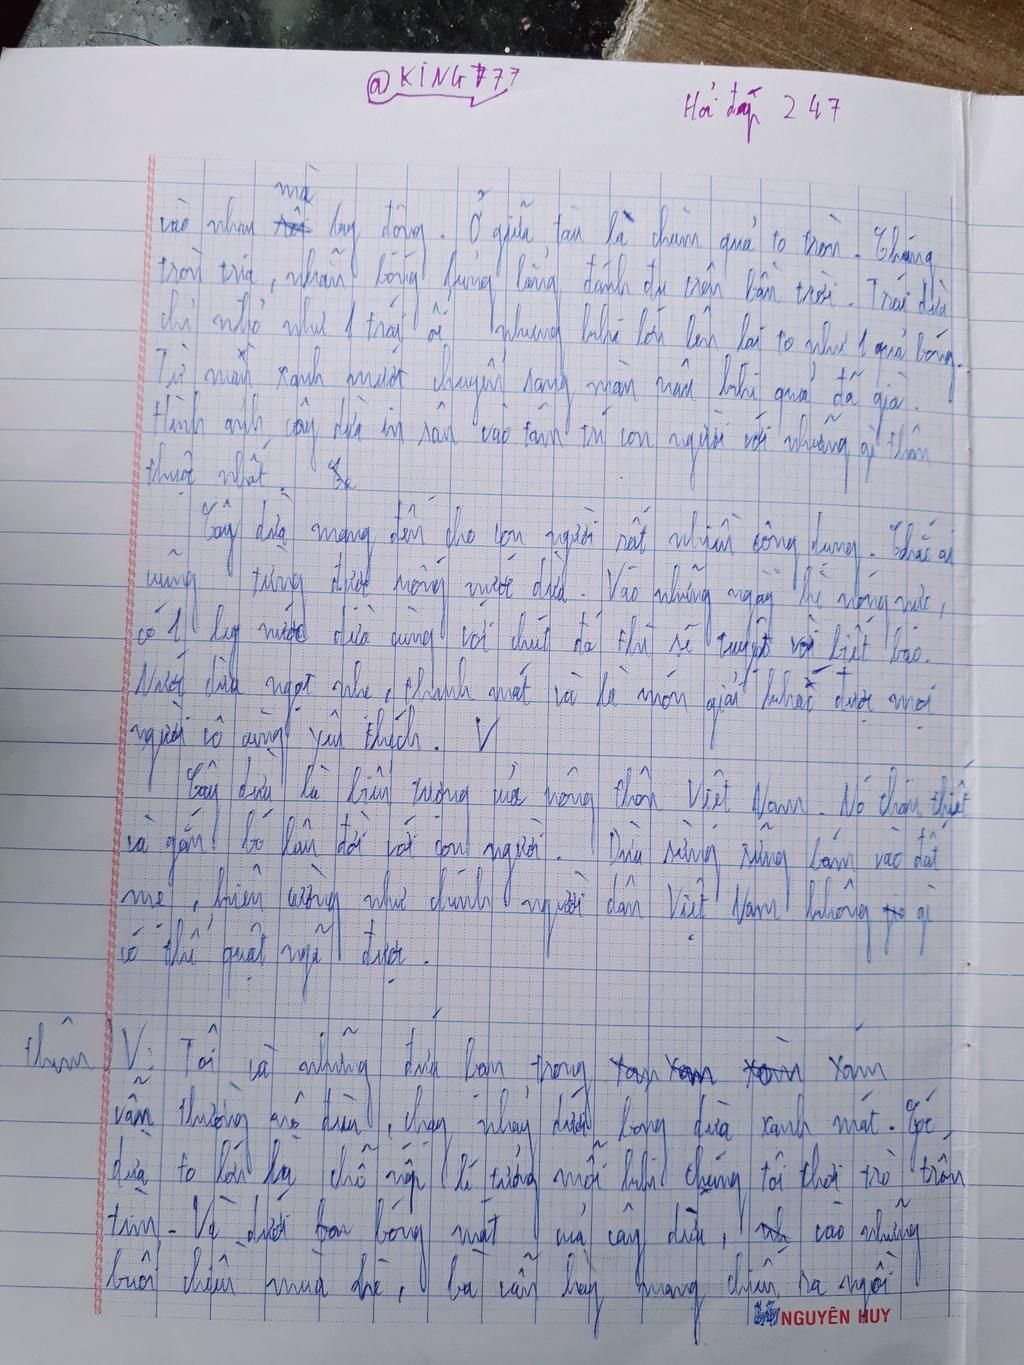 @KING777
Hỏi đáp 247
mà
vào nhau lay động. Ở giữa tàu là chùm quả to tròn. Chúng
tròn trịa, nhẵn bóng đung đưa trên bầu trời. Trái dừa
chỉ nhỏ như 1 trái ổi nhưng khi lớn lên lại to như 1 quả bóng.
Từ màu xanh mướt chuyển sang màu nâu khi quả đã già.
Hình ảnh cây dừa in sâu vào tâm trí con người với những gì thân
thuộc nhất.
Cây dừa mang đến cho con người rất nhiều công dụng. Chắc ai
cũng từng được uống nước dừa. Vào những ngày hè nóng nực,
có 1 ly nước dừa cùng với chút đá thì sẽ tuyệt vời biết bao.
Nước dừa ngọt nhẹ, thanh mát và là món giải khát được mọi
người vô cùng yêu thích. V
Cây dừa là biểu tượng của nông thôn Việt Nam. Nó thân thiết
và gắn bó lâu đời với con người. Dừa sừng sững bám vào đất
mẹ, kiên cường như chính người dân Việt Nam không gì
có thể quật ngã được.
thêm V: Tôi và những đứa bạn trong xóm
vẫn thường nô đùa, chạy nhảy dưới bóng dừa xanh mát. Gốc
dừa to lớn là chỗ nấp lí tưởng mỗi khi chúng tôi chơi trò trốn
tìm. Và dưới bóng mát của cây dừa, vào những
buổi chiều mùa hè, bà vẫn hay mang chiếu ra ngồi
NGUYÊN HUY